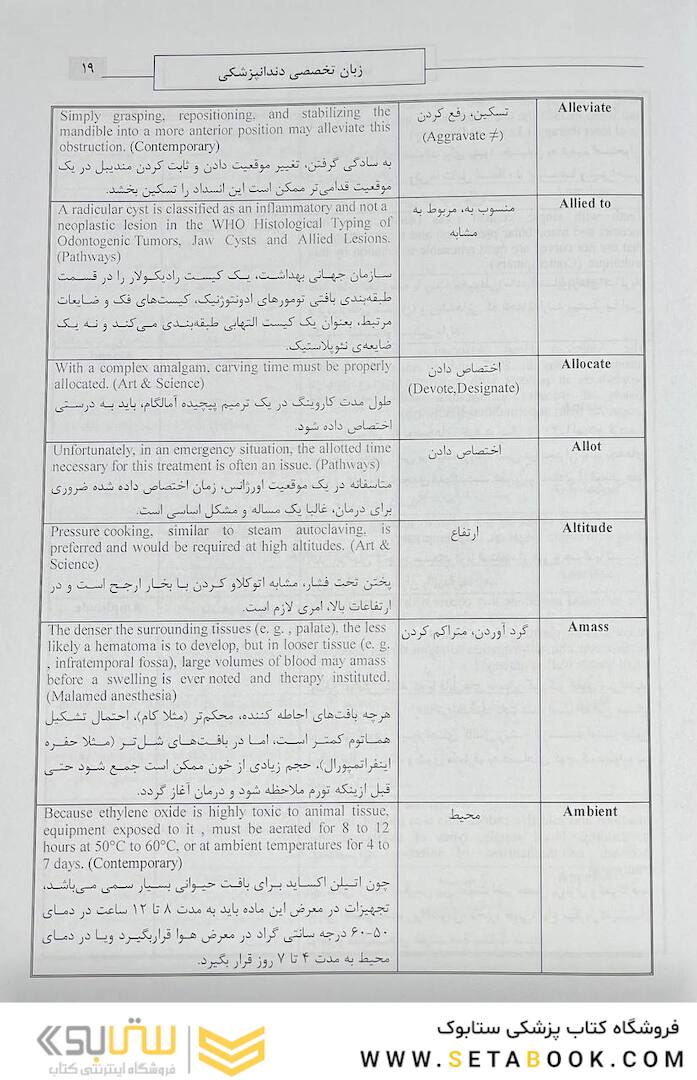 ۱۹
زبان تخصصی دندانپزشکی
Simply grasping, repositioning, and stabilizing the
mandible into a more anterior position may alleviate this
obstruction. (Contemporary)
به سادگی گرفتن، تغییر موقعیت دادن و ثابت کردن مندیبل در یک
موقعیت قدامی‌تر ممکن است این انسداد را تسکین بخشد.
تسکین، رفع کردن
(Aggravate ≠)
Alleviate
A radicular cyst is classified as an inflammatory and not a
neoplastic lesion in the WHO Histological Typing of
Odontogenic Tumors, Jaw Cysts and Allied Lesions.
(Pathways)
سازمان جهانی بهداشت، یک کیست رادیکولار را در قسمت
طبقه‌بندی بافتی تومورهای ادونتوژنیک، کیست‌های فک و ضایعات
مرتبط، بعنوان یک کیست التهابی طبقه‌بندی می‌کند و نه یک
ضایعه‌ی نئوپلاستیک.
منسوب به، مربوط به
مشابه
Allied to
With a complex amalgam, carving time must be properly
allocated. (Art & Science)
طول مدت کاروینگ در یک ترمیم پیچیده آمالگام، باید به درستی
اختصاص داده شود.
اختصاص دادن
(Devote,Designate)
Allocate
Unfortunately, in an emergency situation, the allotted time
necessary for this treatment is often an issue. (Pathways)
متاسفانه در یک موقعیت اورژانس، زمان اختصاص داده شده ضروری
برای درمان، غالبا یک مساله و مشکل اساسی است.
اختصاص دادن
Allot
Pressure cooking, similar to steam autoclaving, is
preferred and would be required at high altitudes. (Art &
Science)
پختن تحت فشار، مشابه اتوکلاو کردن با بخار ارجح است و در
ارتفاعات بالا، امری لازم است.
ارتفاع
Altitude
The denser the surrounding tissues (e. g. , palate), the less
likely a hematoma is to develop, but in looser tissue (e. g.
, infratemporal fossa), large volumes of blood may amass
before a swelling is ever noted and therapy instituted.
(Malamed anesthesia)
هرچه بافت‌های احاطه کننده، محکم‌تر (مثلا کام)، احتمال تشکیل
هماتوم کمتر است، اما در بافت‌های شل‌تر (مثلا حفره
اینفراتمپورال)، حجم زیادی از خون ممکن است جمع شود حتی
قبل ازینکه تورم ملاحظه شود و درمان آغاز گردد.
گرد آوردن، متراکم کردن
Amass
Because ethylene oxide is highly toxic to animal tissue,
equipment exposed to it , must be aerated for 8 to 12
hours at 50°C to 60°C, or at ambient temperatures for 4 to
7 days. (Contemporary)
چون اتیلن اکساید برای بافت حیوانی بسیار سمی می‌باشد،
تجهیزات در معرض این ماده باید به مدت ۸ تا ۱۲ ساعت در دمای
۵۰-۶۰ درجه سانتی گراد در معرض هوا قراربگیرد ویا در دمای
محیط به مدت ۴ تا ۷ روز قرار بگیرد.
محیط
Ambient
فروشگاه کتاب پزشکی ستابوک
WWW.SETABOOK.COM
ستابوک
فروشگاه اینترنتی کتاب